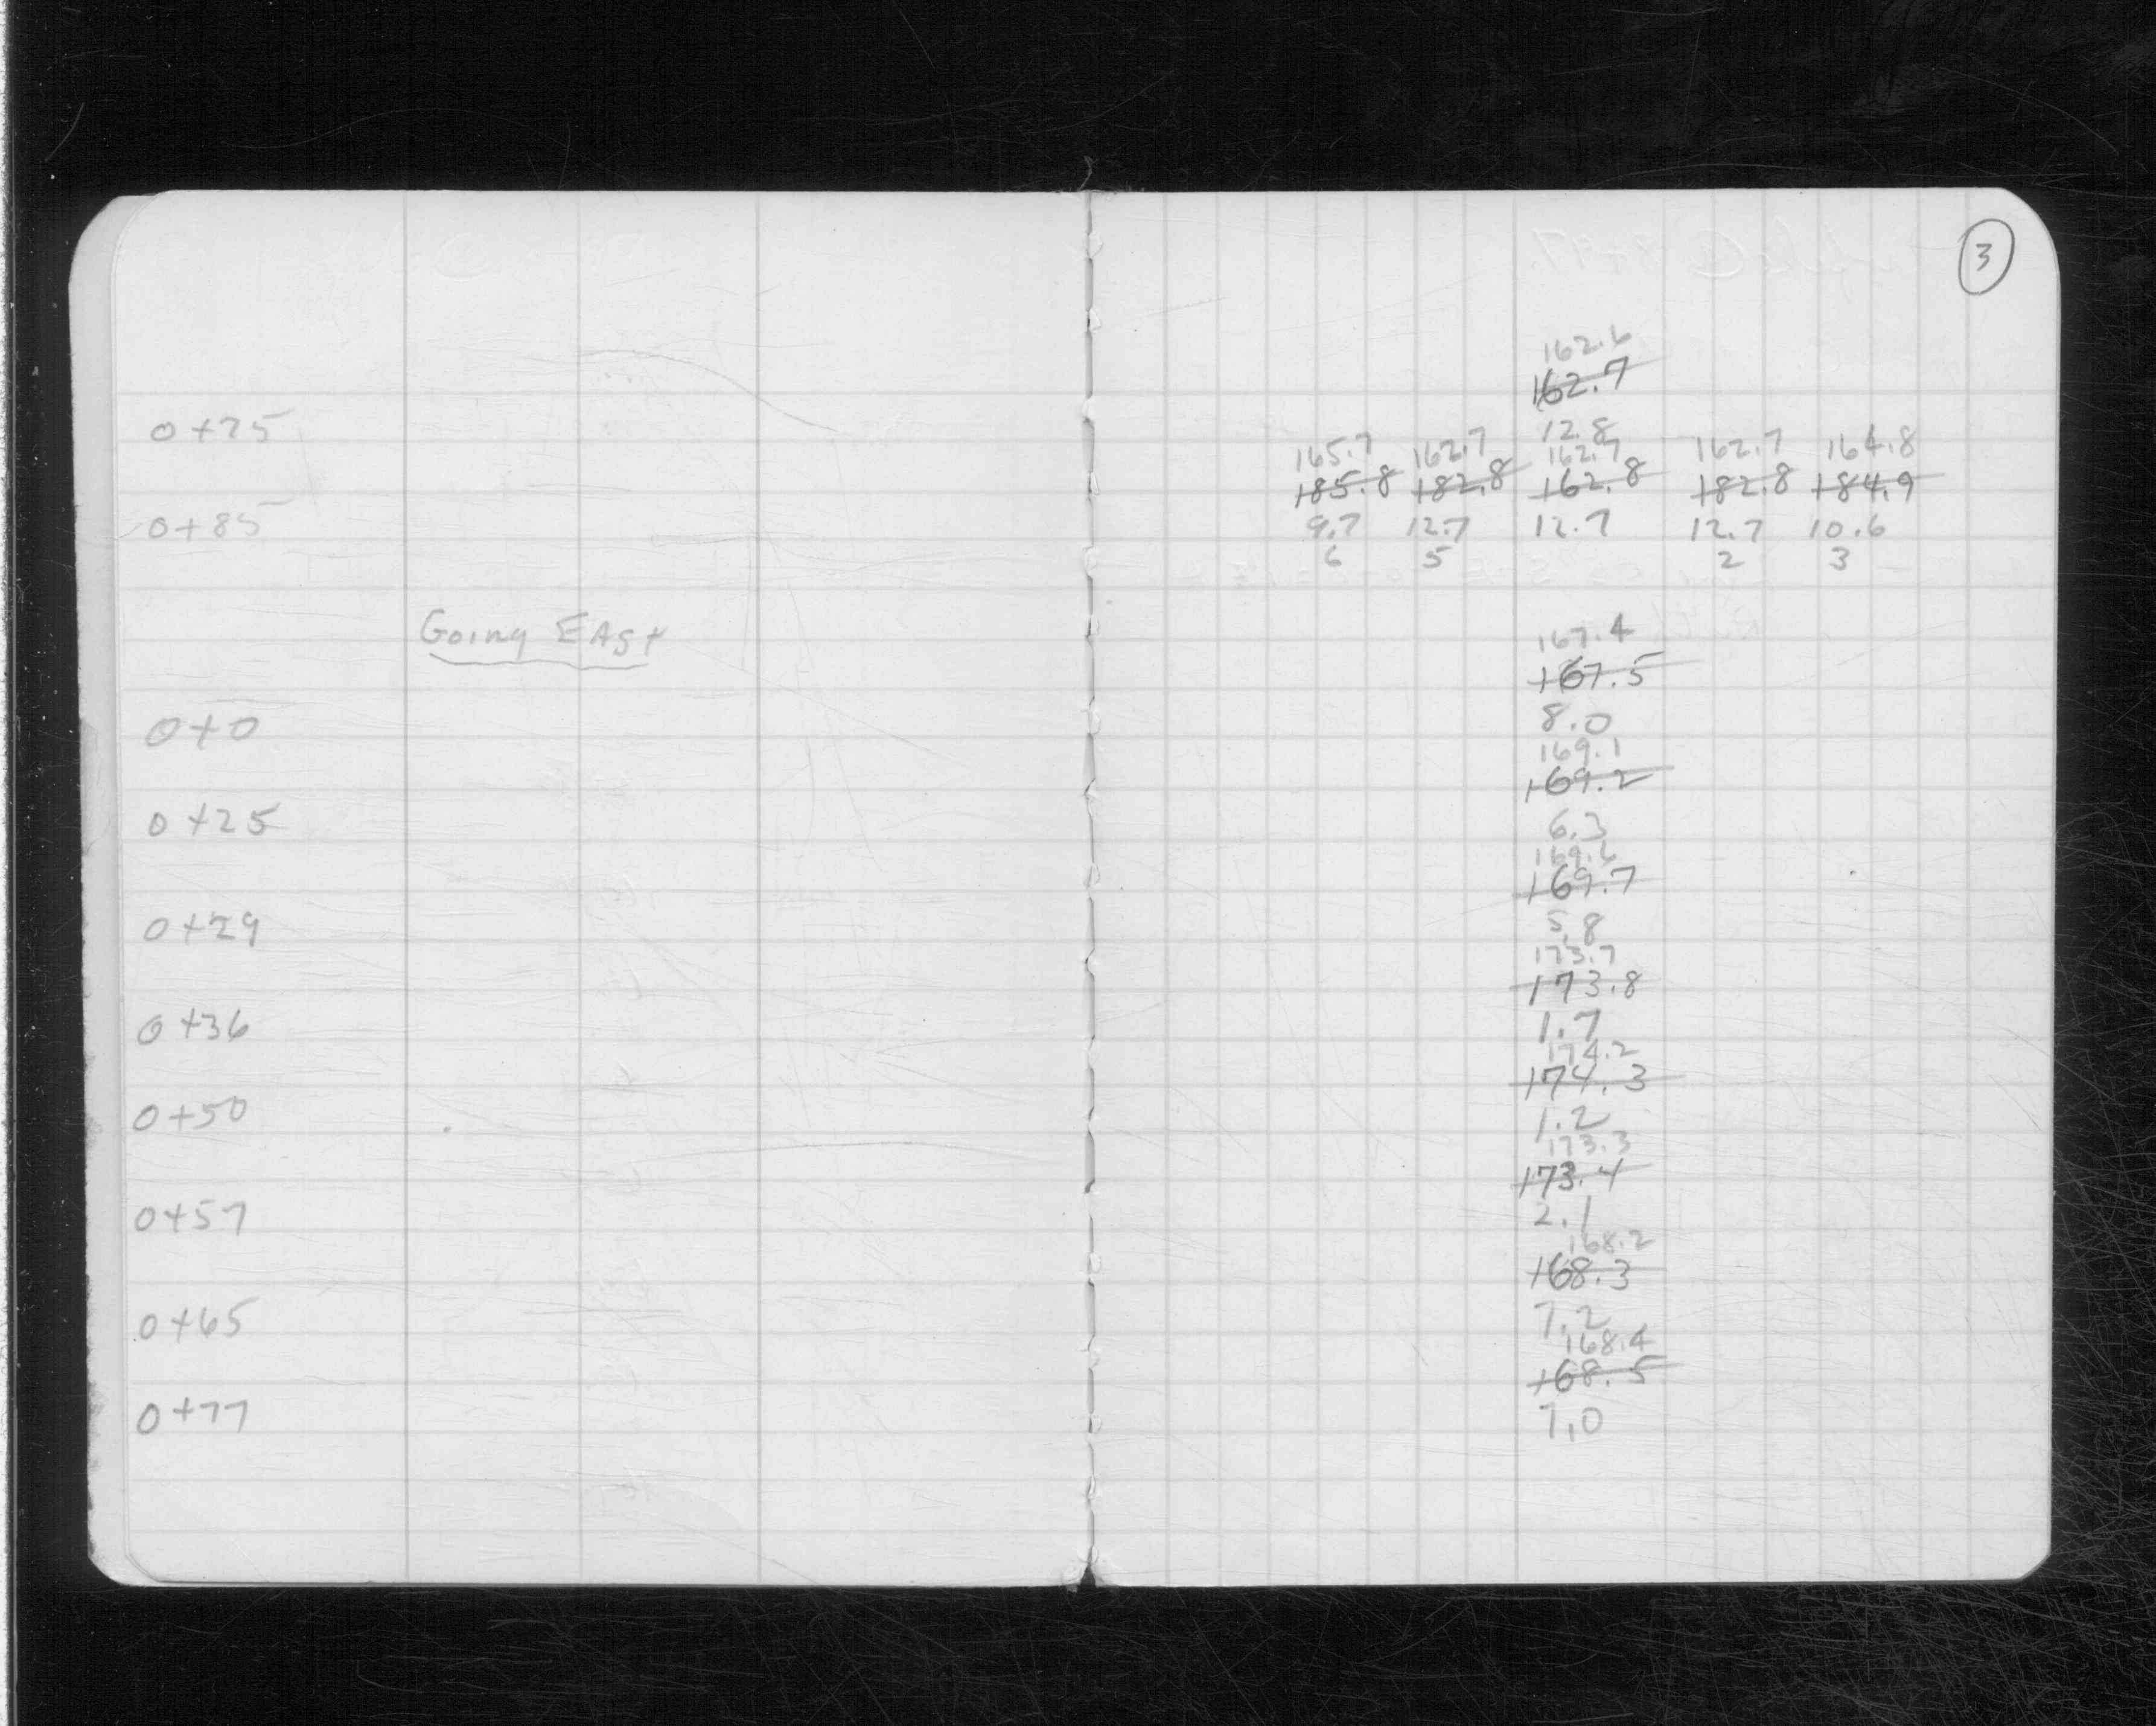 3
162.6
162.7
0+75 12.8
165.7 162.7 162.7 162.7 164.8
185.8 182.8 162.8 182.8 184.9
0+85 9.7 12.7 12.7 12.7 10.6
6 5 2 3
Going EAst 167.4
167.5
0+0 8.0
169.1
169.2
0+25 6.3
169.6
169.7
0+29 5.8
173.7
173.8
0+36 1.7
174.2
174.3
0+50 1.2
173.3
173.4
0+57 2.1
168.2
168.3
0+65 7.2
168.4
168.5
0+77 7.0